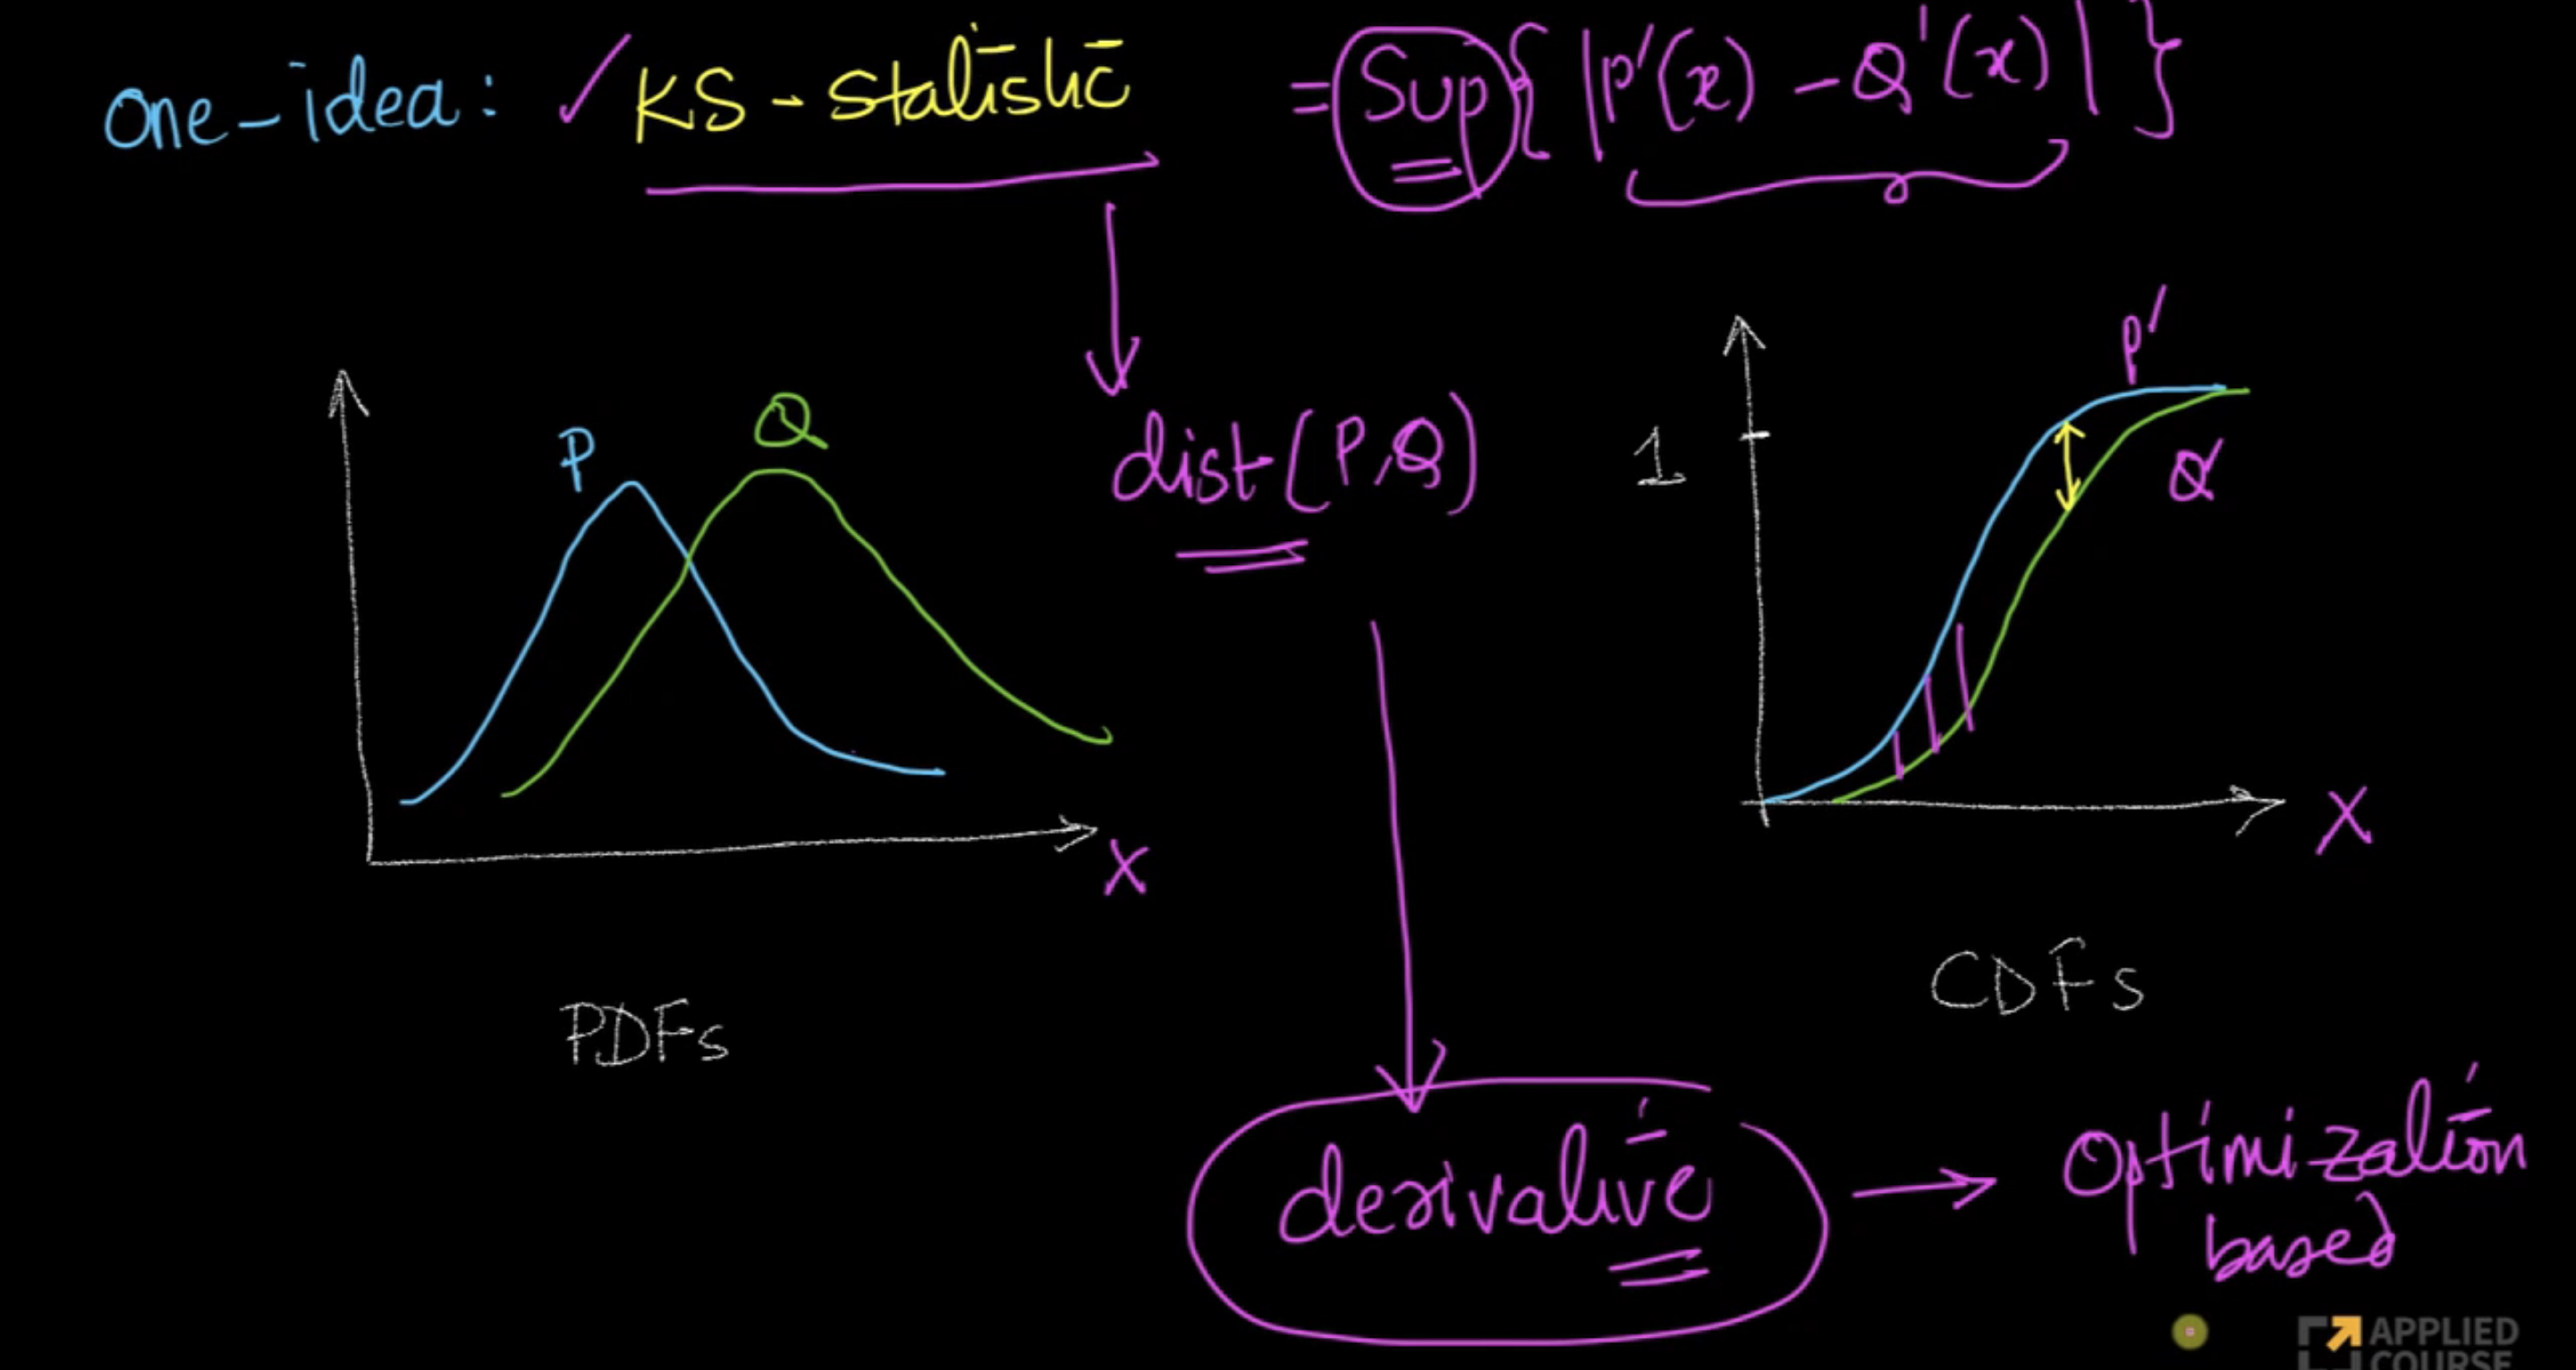 one-idea: ✓ KS-statistic = Sup{ |P'(x) - Q'(x)| }
P
Q
dist(P,Q)
X
PDFs
1
P'
Q'
X
CDFs
derivative → Optimization
based
APPLIED
COURSE